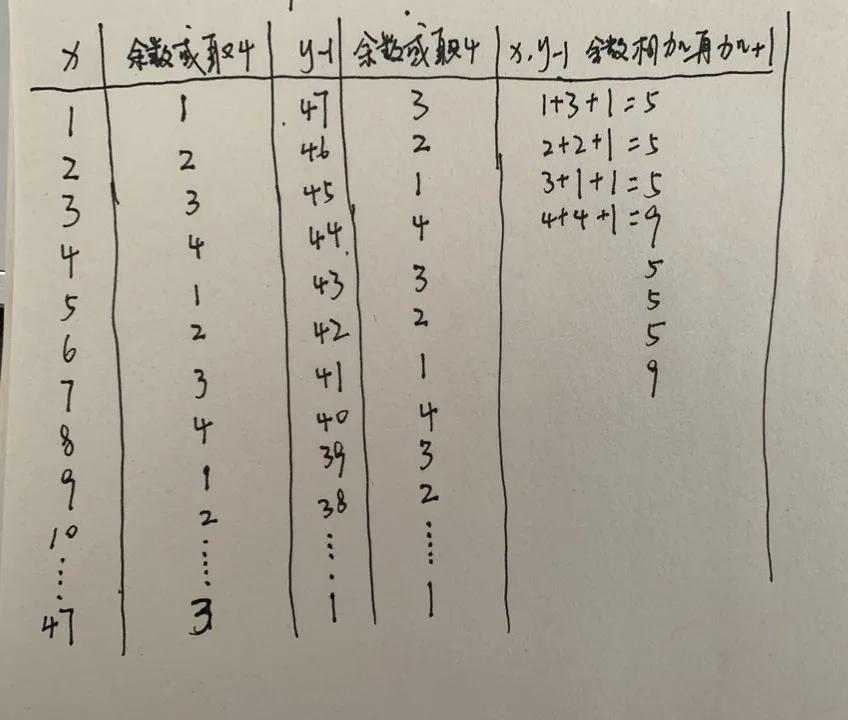 x 余数或取4 y-1 余数或取4 x,y-1 余数相加再加+1
1 1 47 3 1+3+1=5
2 2 46 2 2+2+1=5
3 3 45 1 3+1+1=5
4 4 44 4 4+4+1=9
5 1 43 3 5
6 2 42 2 5
7 3 41 1 5
8 4 40 4 9
9 1 39 3
10 2 38 2
⋮ ⋮ ⋮ ⋮
47 3 1 1